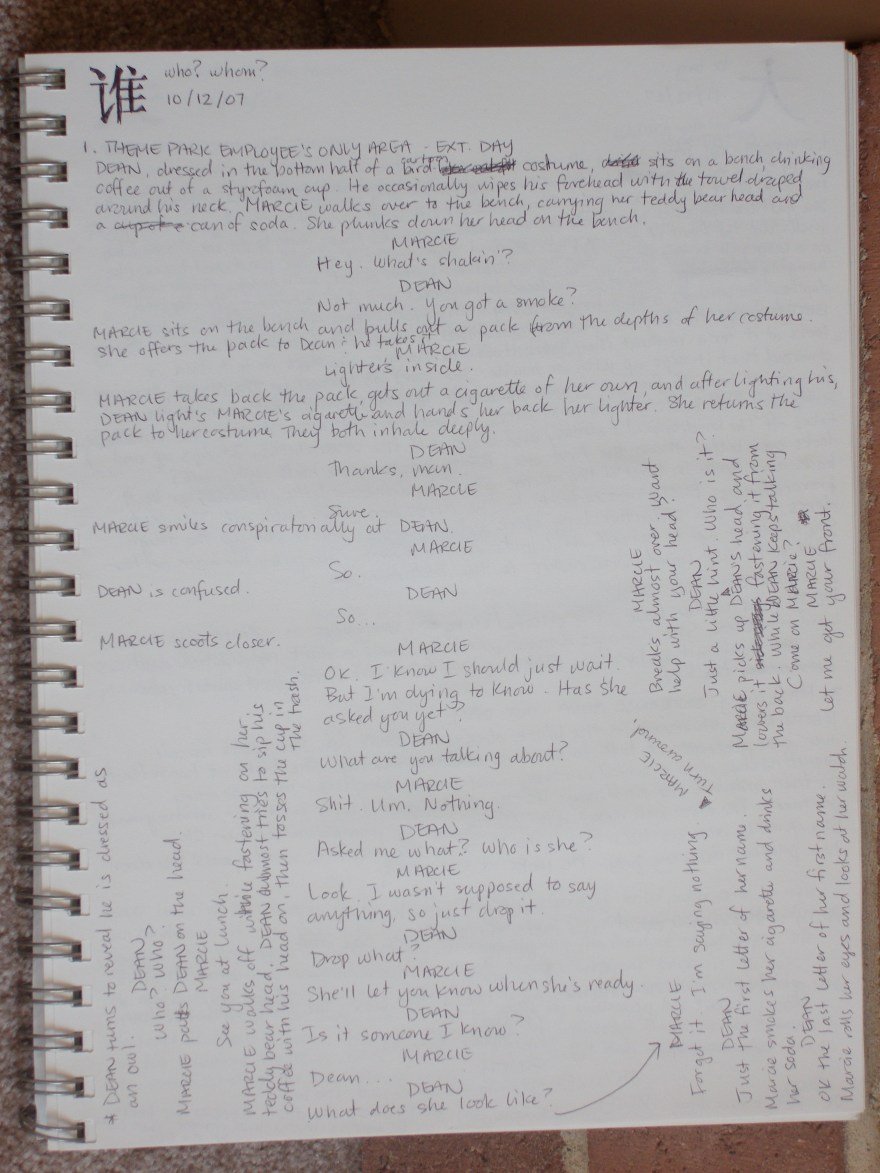 谁 who? whom?
10/12/07
1. THEME PARK EMPLOYEE'S ONLY AREA - EXT. DAY
DEAN, dressed in the bottom half of a cartoon bird costume, sits on a bench, drinking
coffee out of a styrofoam cup. He occasionally wipes his forehead with the towel draped
around his neck. MARCIE walks over to the bench, carrying her teddy bear head and
a can of soda. She plunks down her head on the bench.
MARCIE
Hey. What's shakin'?
DEAN
Not much. You got a smoke?
MARCIE sits on the bench and pulls out a pack from the depths of her costume.
She offers the pack to Dean: he takes it.
MARCIE
Lighter's inside.
MARCIE takes back the pack, gets out a cigarette of her own, and after lighting his,
DEAN light's MARCIE's cigarette and hands her back her lighter. She returns the
pack to her costume. They both inhale deeply.
DEAN
Thanks, man.
MARCIE
Sure.
MARCIE smiles conspiratorially at DEAN.
MARCIE
So.
DEAN is confused.
DEAN
So...
MARCIE scoots closer.
MARCIE
OK. I know I should just wait.
But I'm dying to know. Has she
asked you yet?
DEAN
What are you talking about?
MARCIE
Shit. Um. Nothing.
DEAN
Asked me what? Who is she?
MARCIE
Look. I wasn't supposed to say
anything, so just drop it.
DEAN
Drop what?
MARCIE
She'll let you know when she's ready.
DEAN
Is it someone I know?
MARCIE
Dean...
DEAN
What does she look like?
MARCIE
Forget it. I'm saying nothing
DEAN
Just the first letter of her name.
Marcie smokes her cigarette and drinks
her soda.
DEAN
OK the last letter of her first name.
Marcie rolls her eyes and looks at her watch.
MARCIE
Breaks almost over. Want
help with your head?
DEAN
Just a little hint. Who is it?
MARCIE picks up DEAN's head and
lowers it fastening it from
the back. While DEAN keeps talking
Come on Marcie?
MARCIE
Let me get your front.
MARCIE
Turn around.
* DEAN turns to reveal he is dressed as
an owl.
DEAN
Who? Who?
MARCIE pats DEAN on the head.
MARCIE
See you at lunch.
MARCIE walks off while fastening on her
teddy bear head. DEAN almost tries to sip his
coffee with his head on, then tosses the cup in
the trash.